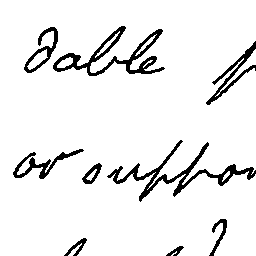 dable p
or suppor